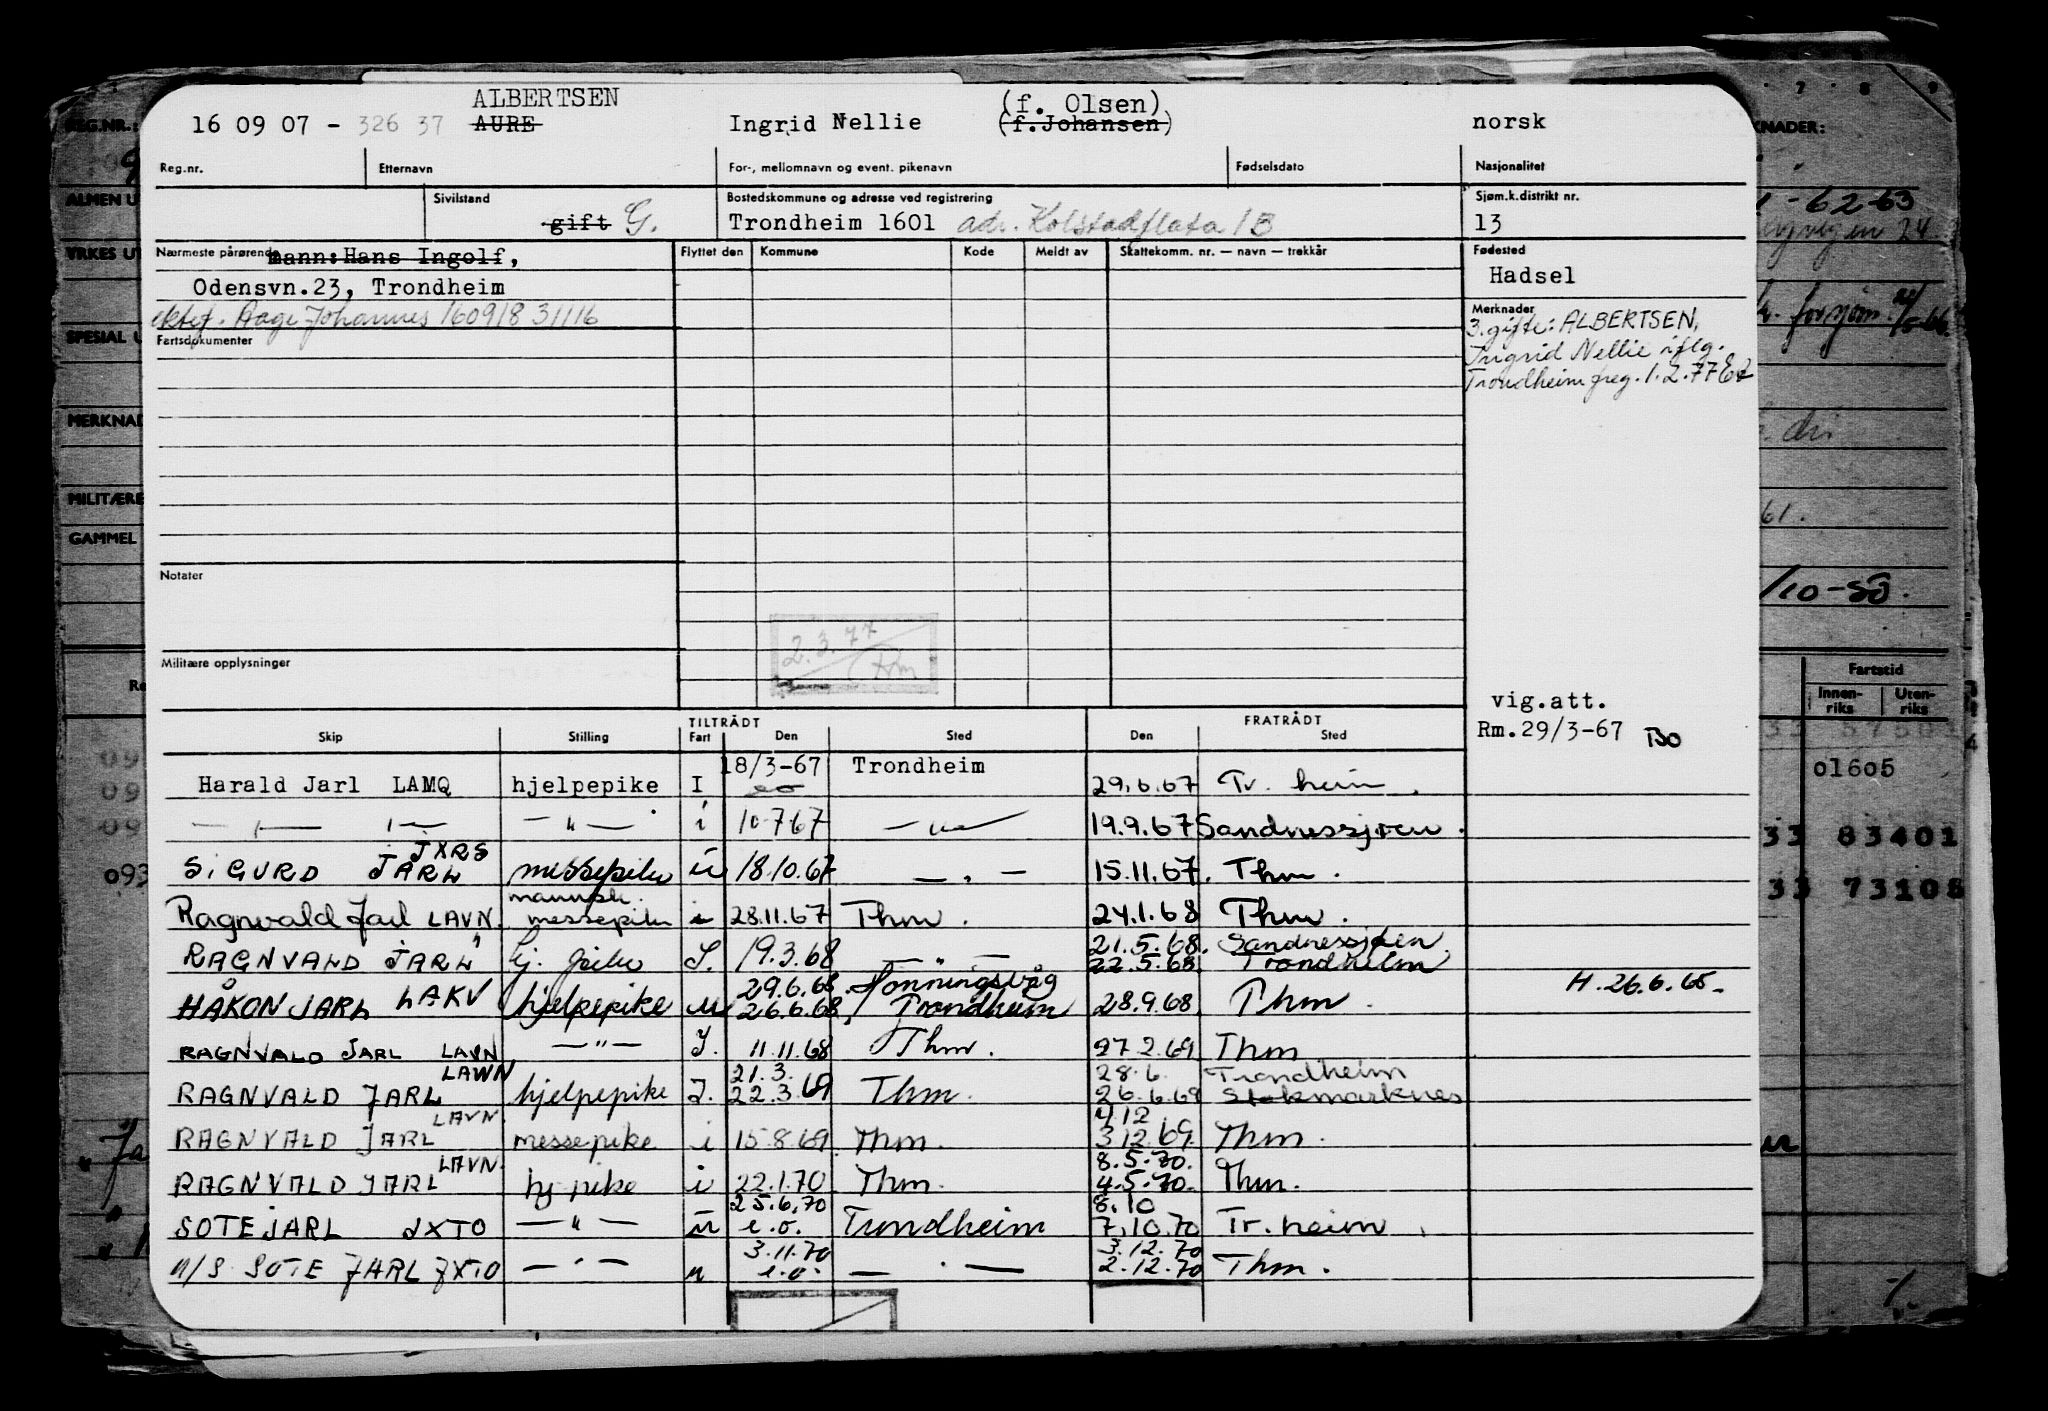 ALBERTSEN (f. Olsen)
16 09 07 - 326 37 AURE Ingrid Nellie (f.Johansen) norsk
Reg.nr. Etternavn For-, mellomnavn og event. pikenavn Fødselsdato Nasjonalitet
Sivilstand Bostedskommune og adresse ved registrering Sjøm.k.distrikt nr.
gift G. Trondheim 1601 adr. Kolstadflata 1B 13
Nærmeste pårørende mann: Hans Ingolf, Flyttet den Kommune Kode Meldt av Skattekomm. nr. – navn – trekkår Fødested
Odensvn.23, Trondheim Hadsel
ektef. Aage Johannes 160918 31116 Merknader
3. gifte: ALBERTSEN,
Fartsdokumenter
Ingrid Nellie iflg.
Trondheim freg. 1.2.77
Notater
2.3.77
Militære opplysninger
vig.att.
Rm.29/3-67 BO
TILTRÅDT FRATRÅDT
Skip Stilling Fart Den Sted Den Sted
Harald Jarl LAMQ hjelpepike I 18/3-67 eo Trondheim 29.6.67 Tr. heim.
— " — " — — " — i 10 7 67 — " — 19.9.67 Sandnessjøen.
SIGURD JARL JXRS messepike u 18.10.67 — " — 15.11.67. Thm.
Ragnvald Jarl LAVN mannsk. messepike i 28.11.67 Thm. 24.1.68 Thm.
RAGNVALD JARL " hj. pike I. 19.3.68 — " — 21.5.68. Sandnessjøen
22.5.68 Trondheim
HÅKON JARL LAKV hjelpepike u 29.6.68. Honningsvåg
26.6.68 Trondheim 28.9.68 Thm. H. 26.6.68.
RAGNVALD JARL LAVN — " — I. 11.11.68 Thm. 27 2.69 Thm
RAGNVALD JARL LAWN hjelpepike I. 21.3.
22.3.69 Thm. 28.6. Trondheim
26.6.69 Stokmarknes
RAGNVALD JARL LAVN messepike i 15.8.69 Thm. 4.12
3.12.69. Thm.
RAGNVALD JARL LAVN hj pike i 22.1.70 Thm. 8.5.70.
4.5.70. Thm.
SOTE JARL JXTO — " — u 25.6.70
e.o. Trondheim 8.10
7.10.70 Tr. heim.
M/S SOTE JARL JXTO — " — u 3.11.70
e.o. — " — 3.12.70
2.12.70 Thm.
REG.NR.:
ALMEN U
YRKES UT
SPECIAL U
MERKNAD
MILITÆRE
GAMMEL
KNADER:
7 8 9
-62-63
24.
61.
/10-50.
Fartstid
Innen-riks Uten-riks
01605
33 83401
33 73105
093